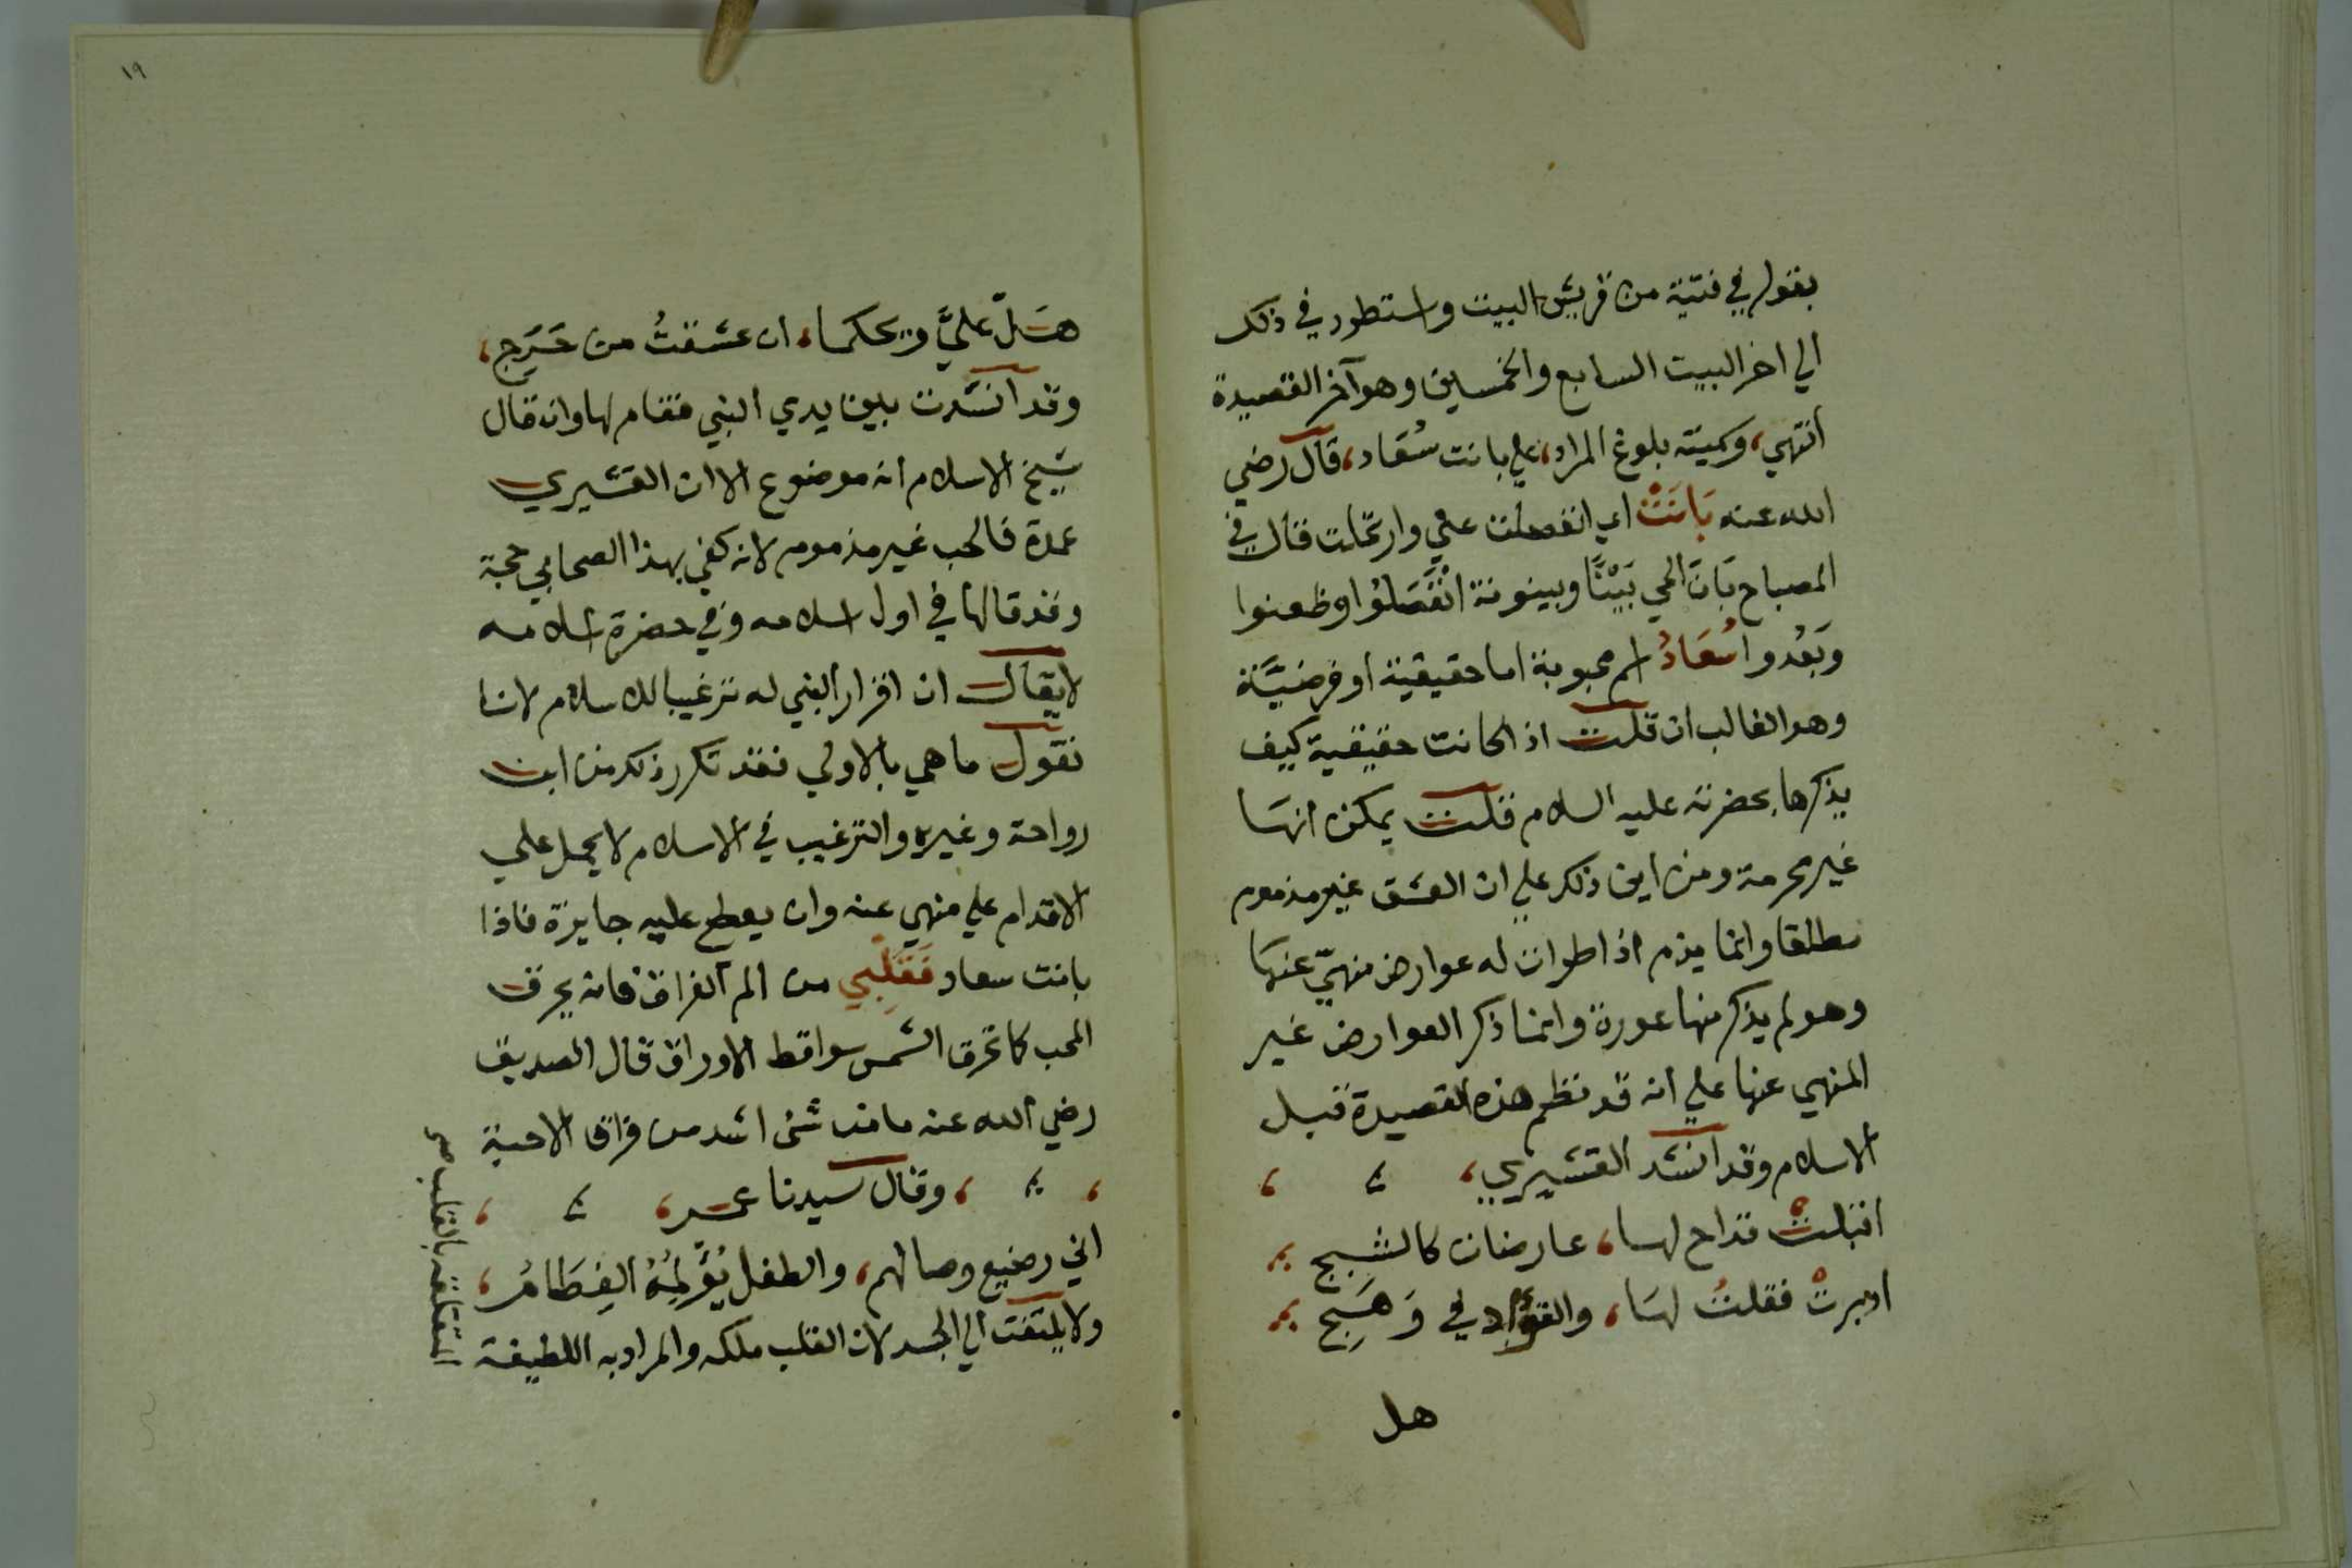 بقوله في فتية من قريش البيت واستطرد في ذلك
الي اخر البيت السابع والخمسين وهو آخر القصيدة
انتهي، وسميته بلوغ المراد، علي بانت سُعَاد، قال رضي
الله عنه بَانَتْ اي انفصلت عني وارتحلت قال في
المصباح بَانَ الحي بَيْنًا وبينونة انْفَصَلُوا وظعنوا
وَبَعُدوا سُعَادُ اسم محبوبة اما حقيقية او فرضيَّة
وهو الغالب ان قلت اذا كانت حقيقية كيف
يذكرها بحضرته عليه السلام قلت يمكن انها
غير محرمة ومن اين ذلك علي ان العشق غير مذموم
مطلقا وانما يذم اذا طرات له عوارض منهيّ عنها
وهو لم يذكر منها عورة وانما ذكر العوارض غير
المنهي عنها علي انه قد نظم هذه القصيدة قبل
الاسلام وقد انشد القشيري،
اقبلتْ فلاح لها، عارضان كالشبج
ادبرتْ فقلتُ لها، والفؤاد في وَهَجِ
هل
١٩
هَل عليَّ ويحكما، ان عشقتُ من حَرَجِ،
وقد انشدت بين يدي النبي فقام لها وان قال
شيخ الاسلام انه موضوع الا ان القشيري
عمدة فالحب غير مذموم لانه كفي بهذا الصحابي حجة
وقد قالها في اول اسلامه وفي حضرة اسلامه
لا يقال ان اقرار النبي له ترغيبا للاسلام لانا
نقول ما هي بالاولي فقد تكرر ذلك من ابن
رواحة وغيره والترغيب في الاسلام لا يحمل علي
الاقدام علي منهي عنه وان يعطي عليه جايزة فاذا
بانت سعاد فَقَلْبِي من الم الفراق فانه يحرق
المحب كما تحرق الشمس سواقط الاوراق قال الصديق
رضي الله عنه ما من شئ اشد من فراق الاحبة
، وقال سيدنا عمر،
اني رضيع وصالهم، والطفل يُؤلِمُهُ الفِطَامُ،
ولا يلتفت الي الجسد لان القلب ملكه والمراد به اللطيفة
المتعلقة بالقلب صح